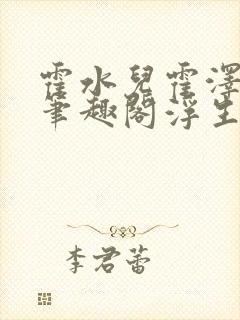 霍水兒霍澤
筆趣閣浮生
李君蕾